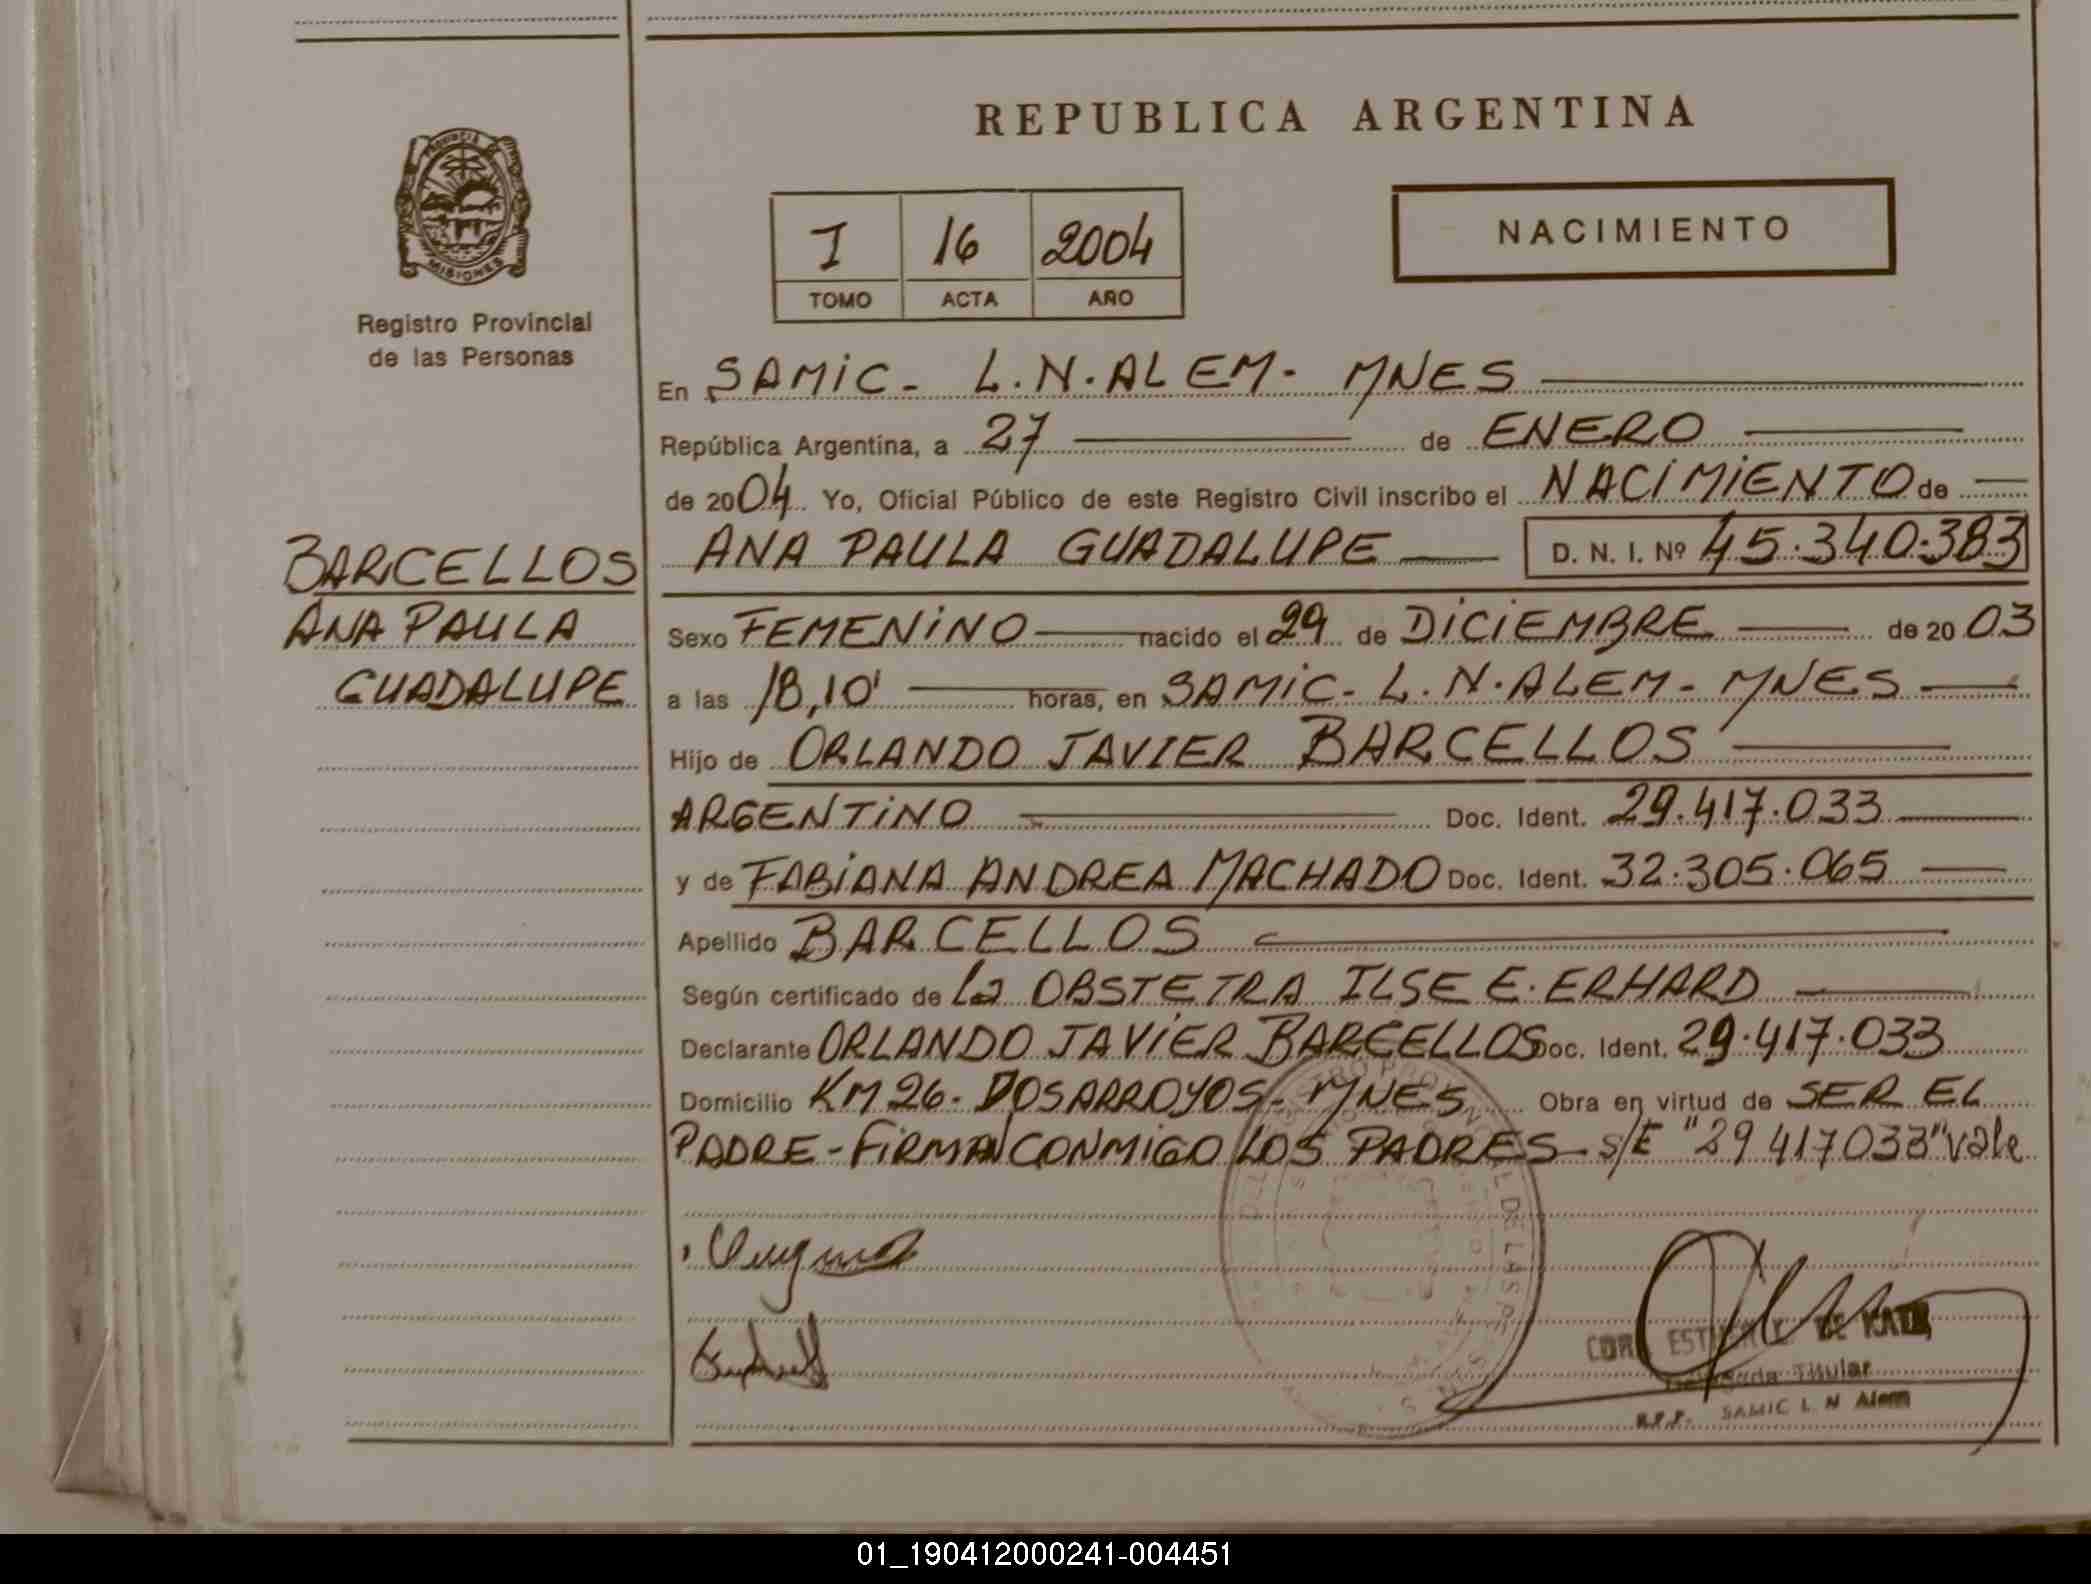 REPUBLICA ARGENTINA
PROVINCIA DE
MISIONES
Registro Provincial
de las Personas
I 16 2004
TOMO ACTA AÑO
NACIMIENTO
En SAMIC - L.N.ALEM - MNES
República Argentina, a 27 de ENERO
de 2004 Yo, Oficial Público de este Registro Civil inscribo el NACIMIENTO de
ANA PAULA GUADALUPE D. N. I. Nº 45.340.383
BARCELLOS
ANA PAULA
GUADALUPE
Sexo FEMENINO nacido el 29 de DICIEMBRE de 2003
a las 18,10' horas, en SAMIC - L.N.ALEM - MNES
Hijo de ORLANDO JAVIER BARCELLOS
ARGENTINO Doc. Ident. 29.417.033
y de FABIANA ANDREA MACHADO Doc. Ident. 32.305.065
Apellido BARCELLOS
Según certificado de la OBSTETRA ILSE E. ERHARD
Declarante ORLANDO JAVIER BARCELLOS Doc. Ident. 29.417.033
Domicilio KM 26 - DOS ARROYOS - MNES Obra en virtud de SER EL
PADRE - FIRMAN CONMIGO LOS PADRES - S/E "29 417 033" vale
DE
Titular
R.P.P. SAMIC L N Alem
01_190412000241-004451